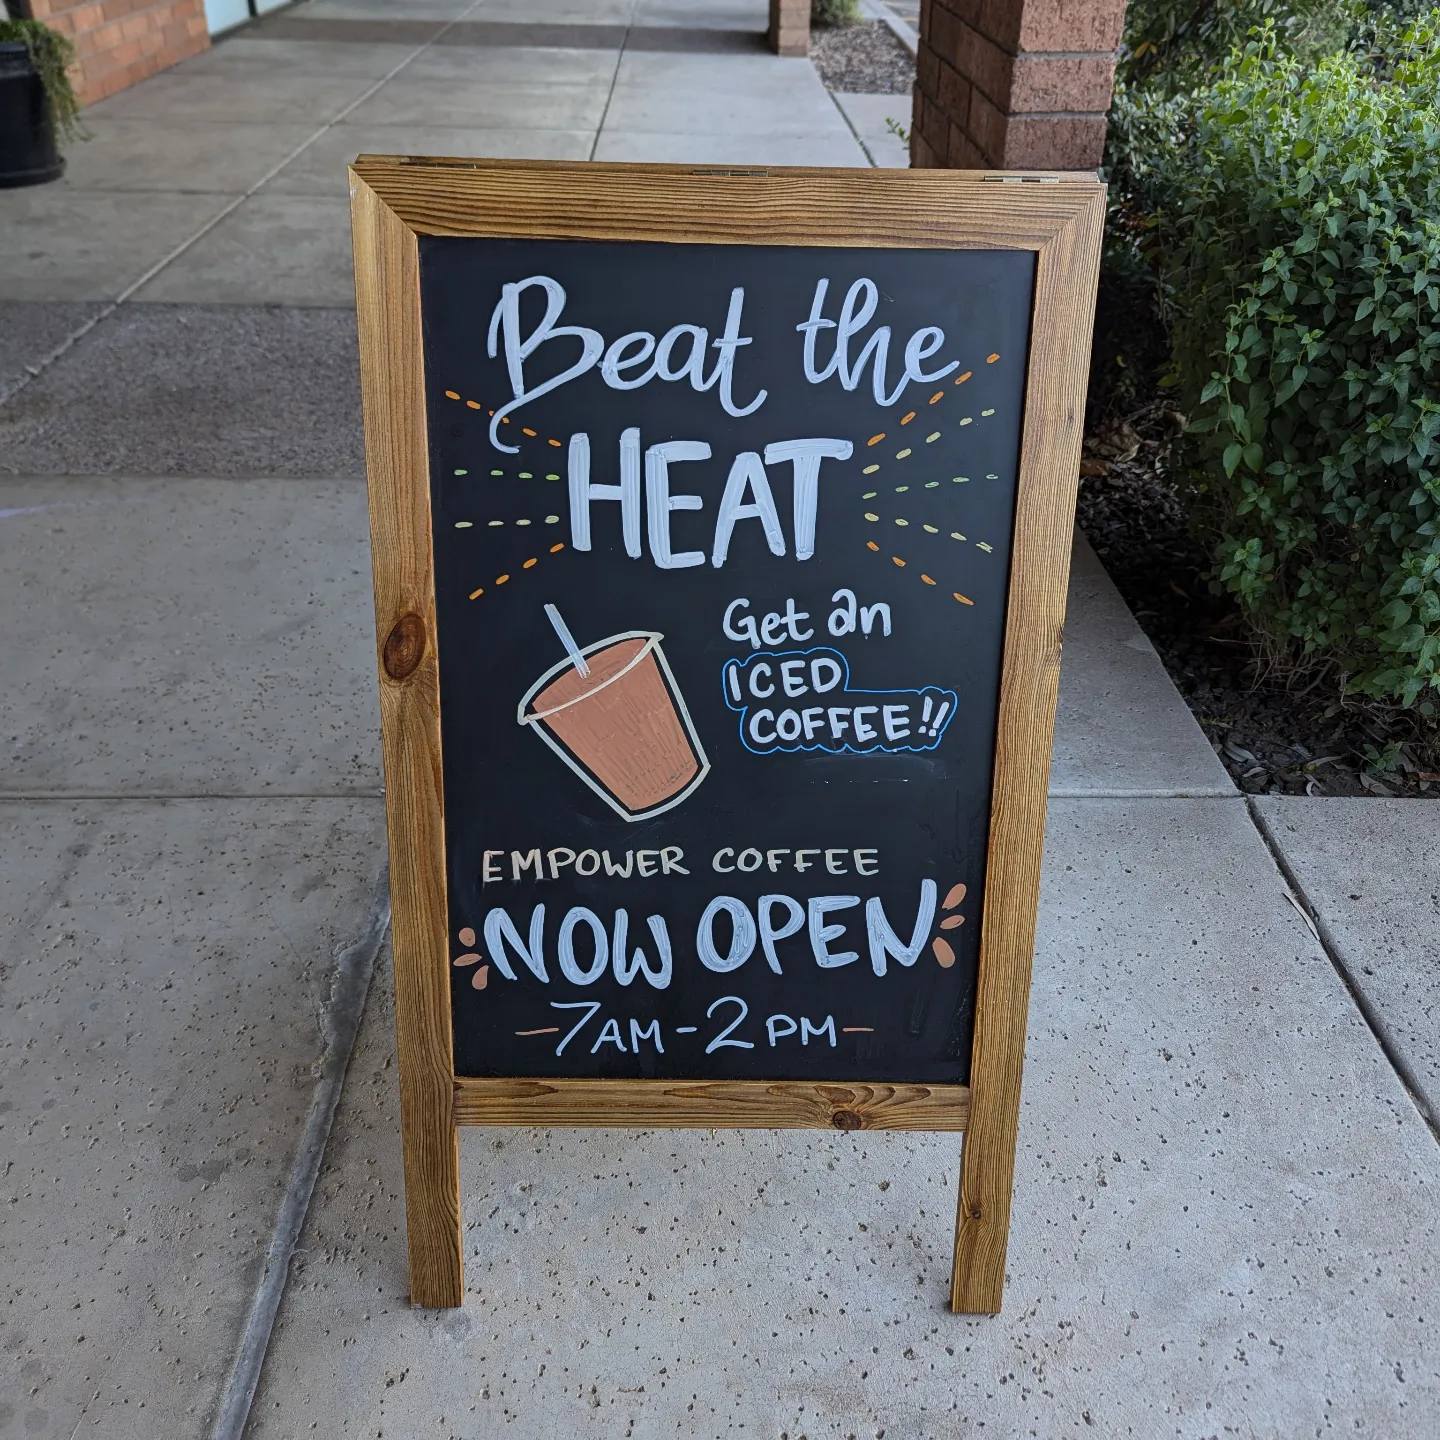 Beat the
HEAT
Get an
ICED
COFFEE!!
EMPOWER COFFEE
NOW OPEN
-7AM-2PM-